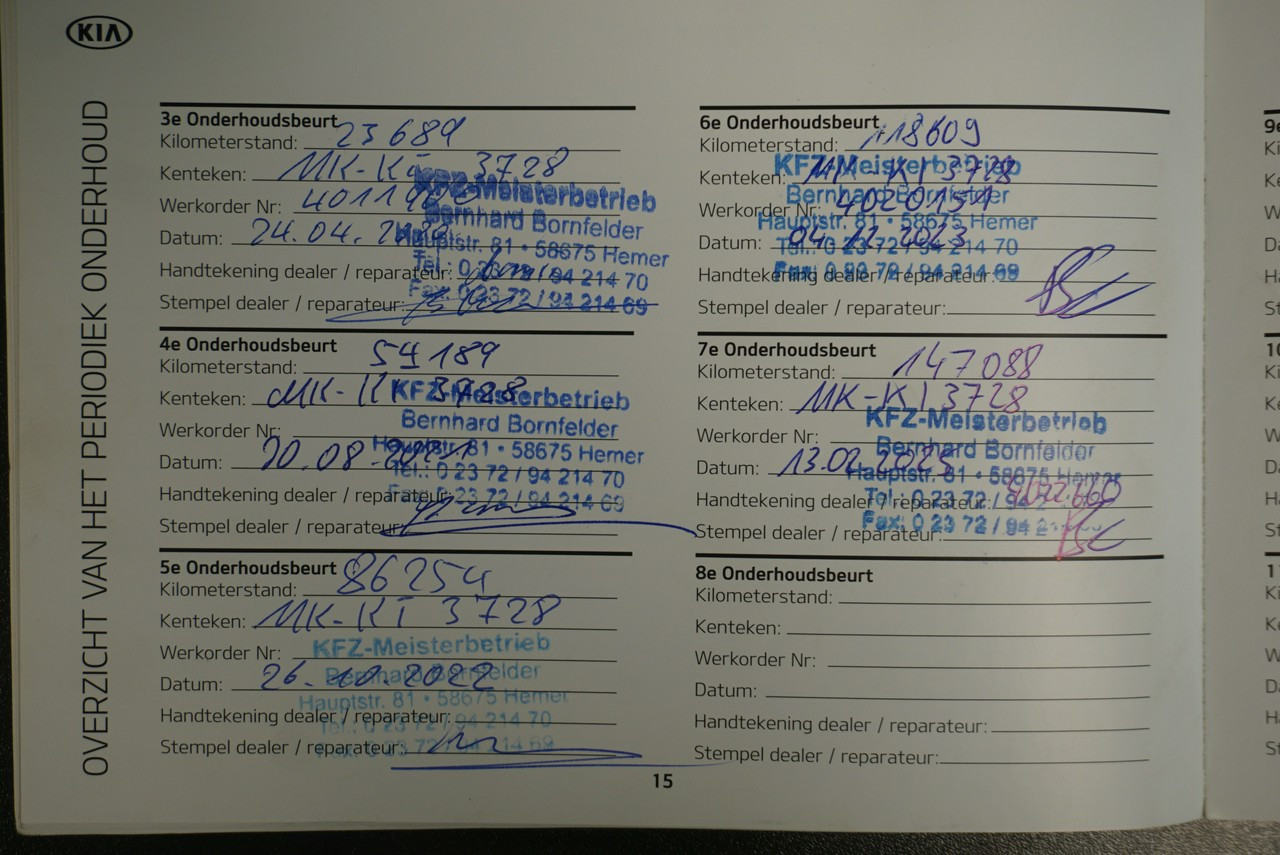 KIA
OVERZICHT VAN HET PERIODIEK ONDERHOUD
3e Onderhoudsbeurt
Kilometerstand: 23689
Kenteken: MK-KI 3728
Werkorder Nr:
KFZ-Meisterbetrieb
Bernhard Bornfelder
Datum: 24.04.
Hauptstr. 81 • 58675 Hemer
Handtekening dealer / reparateur:
Tel.: 0 23 72 / 94 214 70
Stempel dealer / reparateur:
Fax: 0 23 72 / 94 214 69
4e Onderhoudsbeurt
Kilometerstand: 54189
Kenteken: MK-KI 3728
KFZ-Meisterbetrieb
Werkorder Nr:
Bernhard Bornfelder
Datum:
Hauptstr. 81 • 58675 Hemer
Tel.: 0 23 72 / 94 214 70
Handtekening dealer / reparateur:
Fax: 0 23 72 / 94 214 69
Stempel dealer / reparateur:
5e Onderhoudsbeurt
Kilometerstand: 86254
Kenteken: MK-KI 3728
Werkorder Nr:
KFZ-Meisterbetrieb
Bernhard Bornfelder
Datum: 26.10.2022
Hauptstr. 81 • 58675 Hemer
Handtekening dealer / reparateur:
Tel.: 0 23 72 / 94 214 70
Stempel dealer / reparateur:
Fax: 0 23 72 / 94 214 69
6e Onderhoudsbeurt
Kilometerstand: 118609
KFZ-Meisterbetrieb
Kenteken: MK-KI 3728
Bernhard Bornfelder
Werkorder Nr: 4020151
Hauptstr. 81 • 58675 Hemer
Datum: 04.12.2023
Tel.: 0 23 72 / 94 214 70
Handtekening dealer / reparateur:
Fax: 0 23 72 / 94 214 69
Stempel dealer / reparateur:
7e Onderhoudsbeurt
Kilometerstand: 147088
Kenteken: MK-KI 3728
KFZ-Meisterbetrieb
Werkorder Nr:
Bernhard Bornfelder
Datum: 13.02.2025
Hauptstr. 81 • 58675 Hemer
Handtekening dealer / reparateur:
Tel.: 0 23 72 / 94
Stempel dealer / reparateur:
Fax: 0 23 72 / 94
8e Onderhoudsbeurt
Kilometerstand:
Kenteken:
Werkorder Nr:
Datum:
Handtekening dealer / reparateur:
Stempel dealer / reparateur:
15